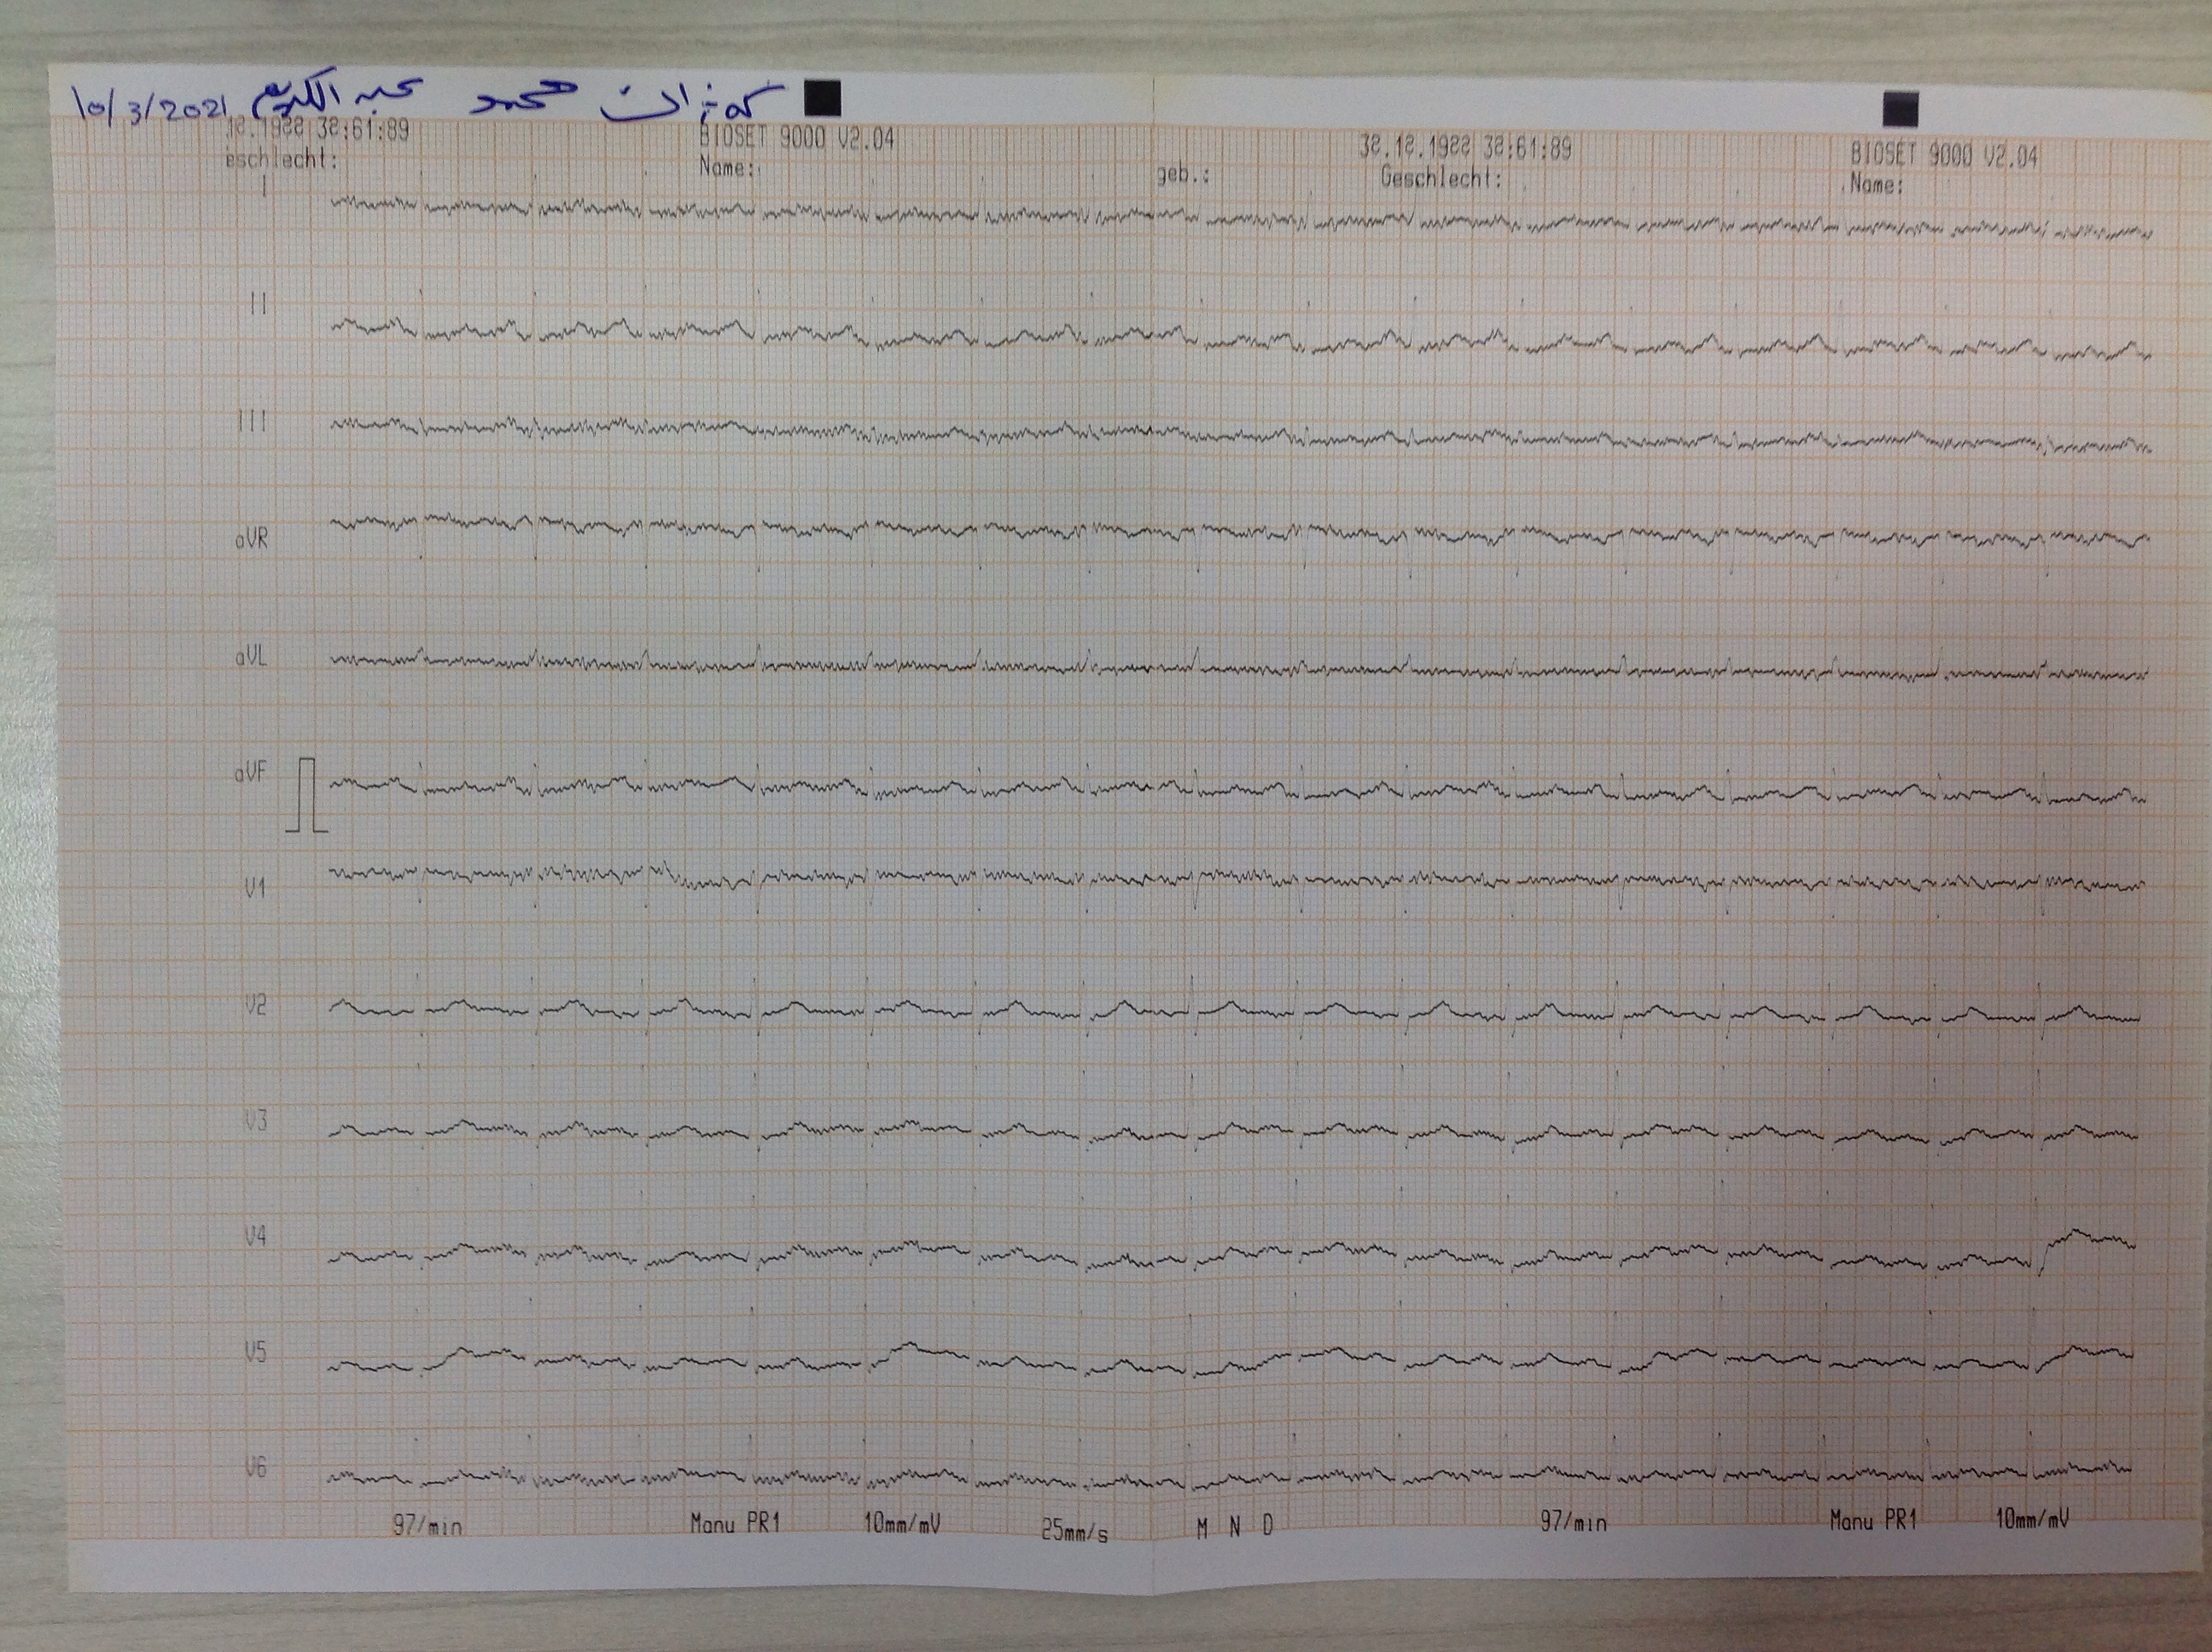 10/3/2021 عبد الكريم محمد
12.1922 32:61:89 BIOSET 9000 V2.04 32.12.1922 32:61:89 BIOSET 9000 V2.04
eschlecht: Name: geb.: Geschlecht: Name:
I
II
III
aVR
aVL
aVF
V1
V2
V3
V4
V5
V6
97/min Manu PR1 10mm/mV 25mm/s M N D 97/min Manu PR1 10mm/mV